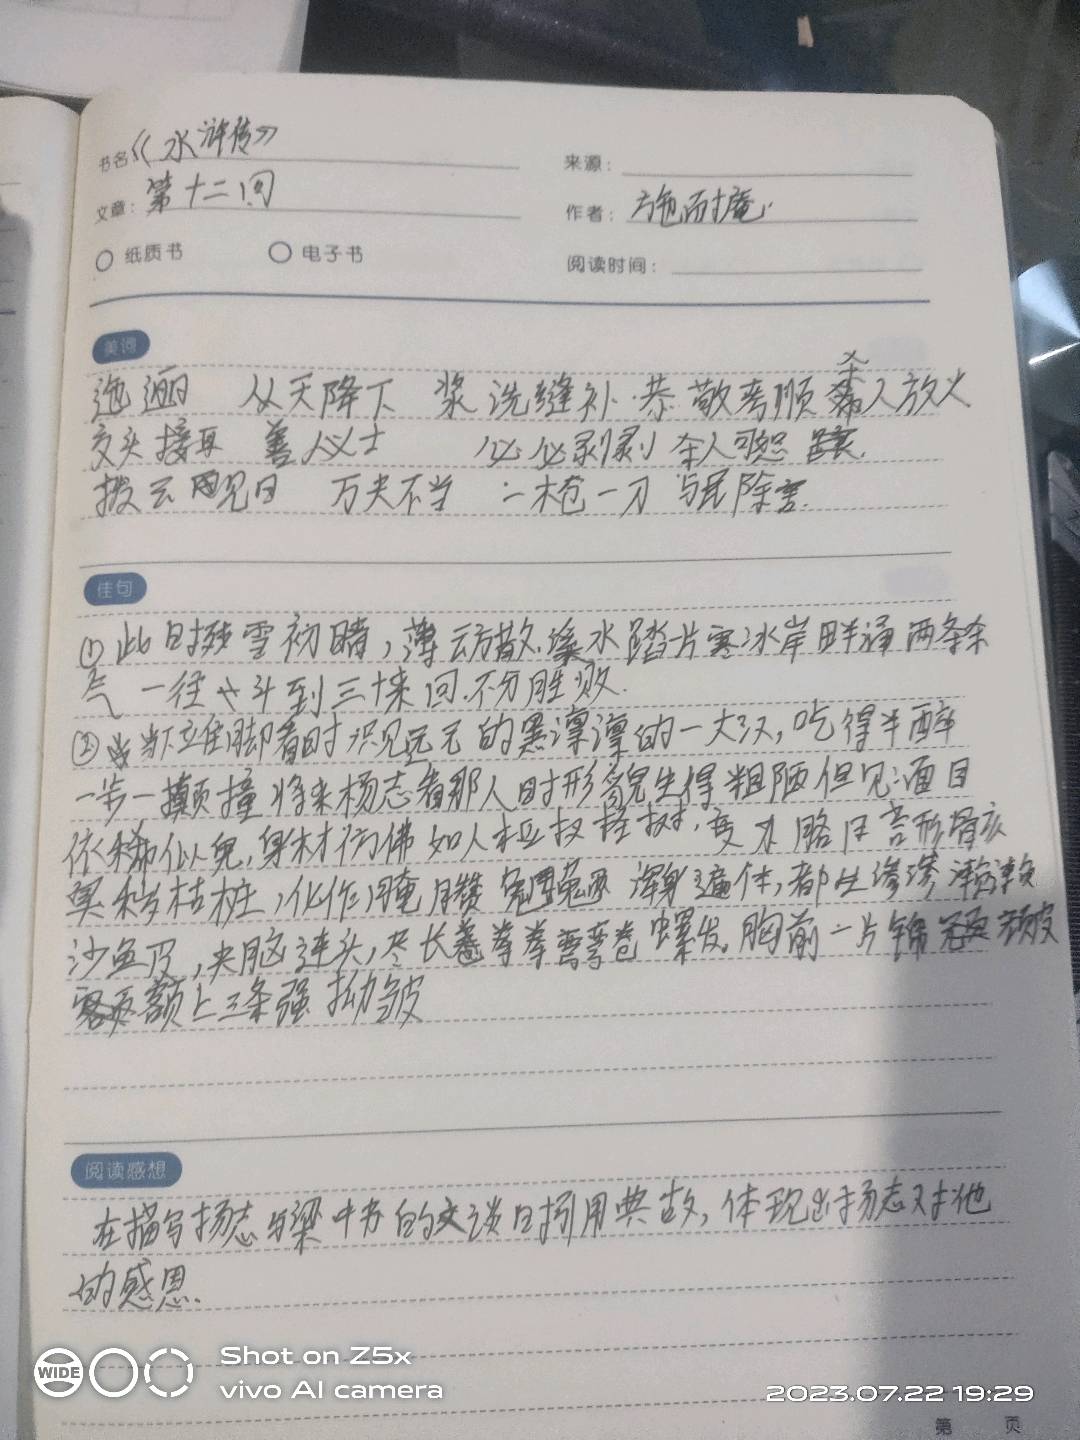 书名《水浒传》 来源:
文章: 第十二回 作者: 施耐庵.
纸质书 电子书 阅读时间:
美词
迤逦 从天降下 浆洗缝补 恭敬孝顺 杀人放火
交头接耳 善人义士 必必剥剥 杀人可恕
拨云见日 万夫不当 一枪一刀 与民除害.
佳句
①此时残雪初晴,薄云方散.溪水踏片寒冰岸畔涌两条杀
气 一往 斗到三十来回.不分胜败.
② 立住脚看时 只见远元的黑凛凛的一大汉,吃得半醉
一步一颠撞将来杨志看那人时形貌生得粗陋但见:面目
依稀似鬼,身材仿佛如人 杈怪树,变为胳肢形骸
臭秽枯桩,化作腌臜 浑身遍体,都生渗渗濑濑
沙鱼皮,夹脑连头,尽长 拳拳弯弯卷螺发.胸前一片锦 顽皮
额上三条强拗皱
阅读感想
在描写杨志与梁中书的交谈时引用典故,体现出杨志对他
的感恩.
WIDE
Shot on Z5x
vivo AI camera
2023.07.22 19:29
第 页